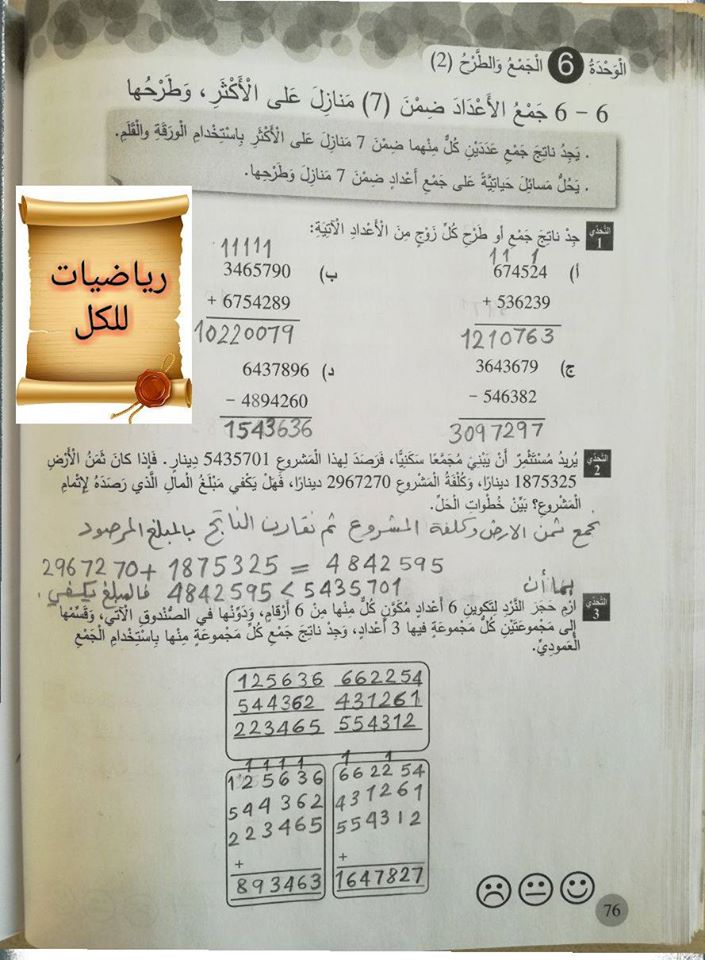 الْوَحْدَةُ 6 الْجَمْعُ وَالطَّرْحُ (2)
6 - 6 جَمْعُ الأَعْدَادَ ضِمْنَ (7) مَنازِلَ عَلى الْأَكْثَرِ ، وَطَرْحُها
. يَجِدُ ناتِجَ جَمْعِ عَدَدَيْنِ كُلٌّ مِنْهما ضِمْنَ 7 مَنازِلَ عَلى الْأَكْثَرِ بِاسْتِخْدامِ الْوَرَقَةِ والْقَلَمِ.
. يَحُلُّ مَسائِلَ حَياتِيَّةً عَلى جَمْعِ أَعْدادٍ ضِمْنَ 7 مَنازِلَ وَطَرْحِها.
رياضيات
للكل
التَّحَدّي 1 جِدْ ناتِجَ جَمْعِ أَو طَرْحِ كُلِّ زَوْجٍ مِنَ الْأَعْدادِ الْآتِيَةِ:
أ)
11 1
674524
+ 536239
1210763
ب)
11111
3465790
+ 6754289
10220079
ج)
3643679
- 546382
3097297
د)
6437896
- 4894260
1543636
التَّحَدّي 2 يُريدُ مُسْتَثْمِرٌ أَنْ يَبْنِيَ مُجَمَّعًا سَكَنِيًّا، فَرَصَدَ لِهذا الْمَشْروعِ 5435701 دِينارٍ . فَإِذا كانَ ثَمَنُ الْأَرْضِ
1875325 دينارًا، وَكُلْفَةُ الْمَشْروعِ 2967270 دينارًا، فَهَلْ يَكْفي مَبْلَغُ الْمالِ الَّذي رَصَدَهُ لِإِتْمامِ
الْمَشْروعِ؟ بَيِّنْ خُطُواتِ الْحَلِّ.
نجمع ثمن الارض وكلفة المشروع ثم نقارن الناتج بالمبلغ المرصود
2967270 + 1875325 = 4842595
بما أن 4842595 < 5435701 فالمبلغ يكفي.
التَّحَدّي 3 اِرْمِ حَجَرَ النَّرْدِ لِتَكوينِ 6 أَعْدادٍ مُكَوَّنٍ كُلٌّ مِنْها مِنْ 6 أَرْقامٍ، وَدَوِّنْها في الصُّنْدوقِ الْآتي، وَقَسِّمْها
إِلى مَجْموعَتَيْنِ كُلُّ مَجْموعَةٍ فيها 3 أَعْدادٍ، وَجِدْ ناتِجَ جَمْعِ كُلِّ مَجْموعَةٍ مِنْها بِاسْتِخْدامِ الْجَمْعِ
الْعَمودِيِّ.
125636 662254
544362 431261
223465 554312
1 1 1 1
125636
544362
223465
+
893463
1 1
662254
431261
554312
+
1647827
76